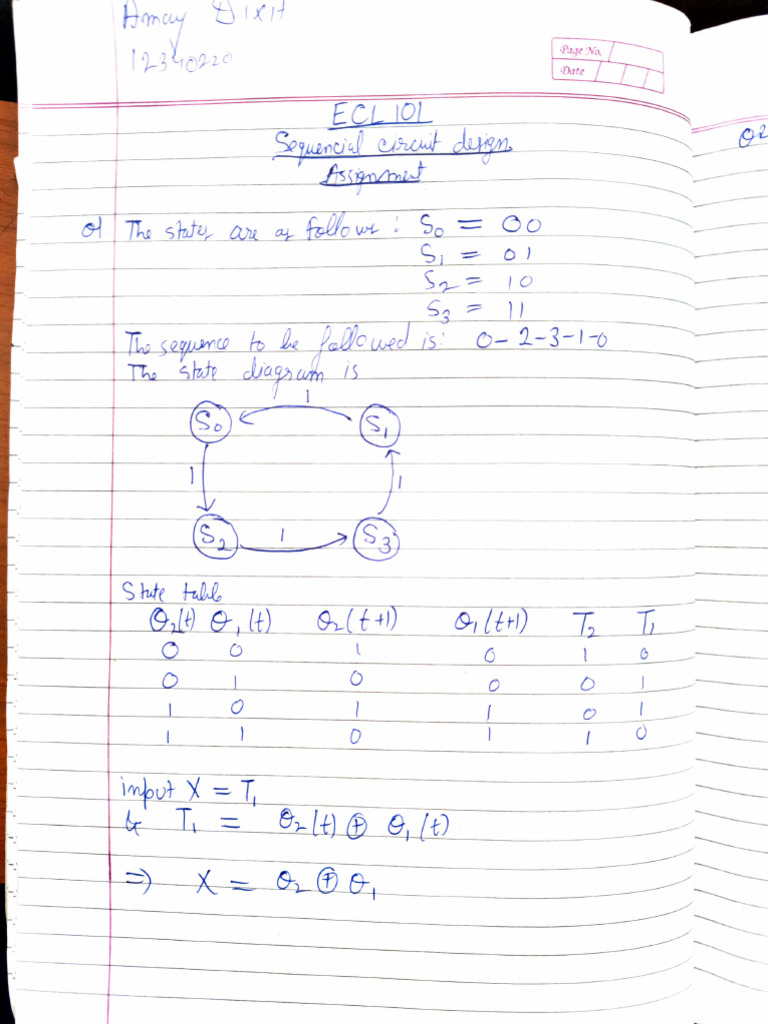 Amay Dixit
12340220
Page No.
Date
ECL 101
Sequencial circuit design
Assignment
Q1 The states are as follows: S0 = 00
S1 = 01
S2 = 10
S3 = 11
The sequence to be followed is: 0-2-3-1-0
The state diagram is
1
S0 S1
1 1
S2 1 S3
State table
Q2(t) Q1(t) Q2(t+1) Q1(t+1) T2 T1
0 0 1 0 1 0
0 1 0 0 0 1
1 0 1 1 0 1
1 1 0 1 1 0
input X = T1
& T1 = Q2(t) ⊕ Q1(t)
⇒ X = Q2 ⊕ Q1
Q2